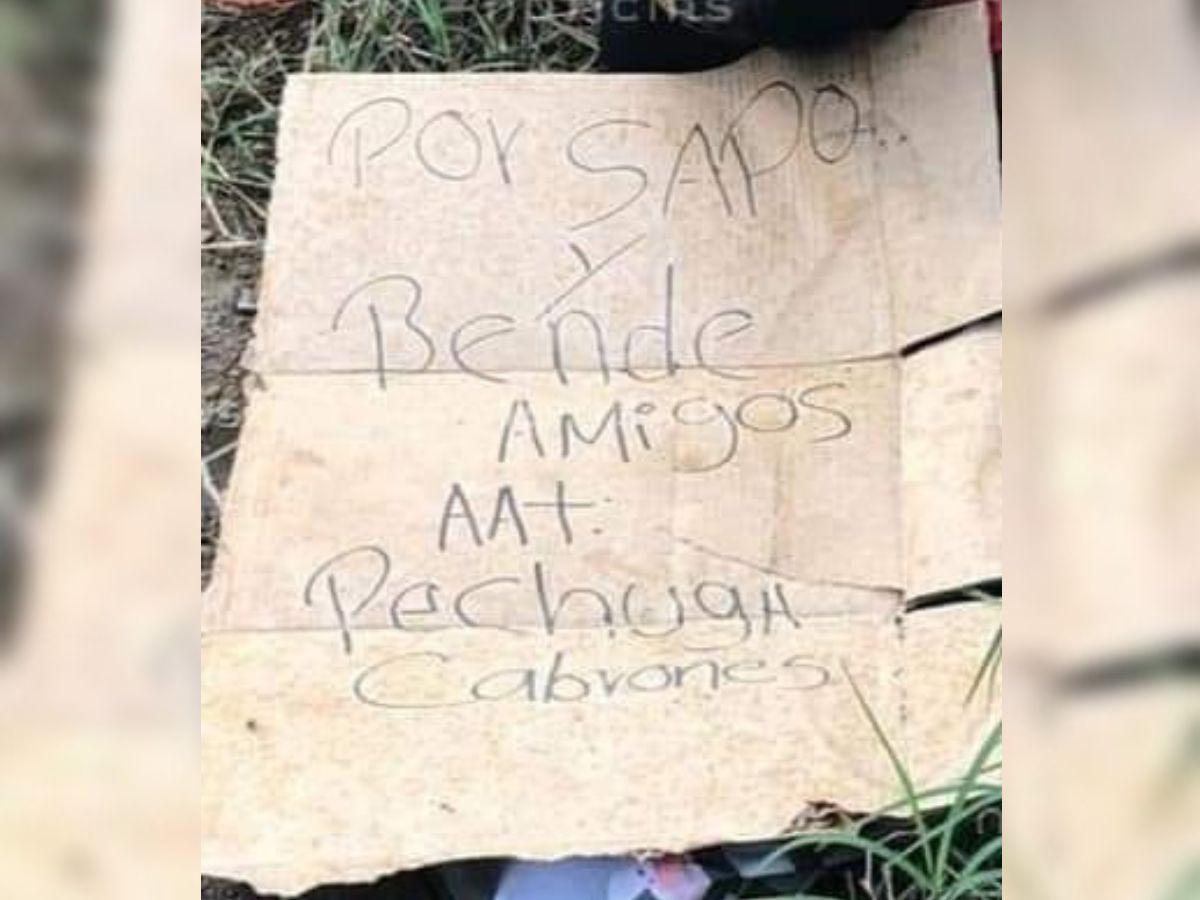 POr SAPO..
Y
Bende
AMigos
AAt:
PechugA
Cabrones